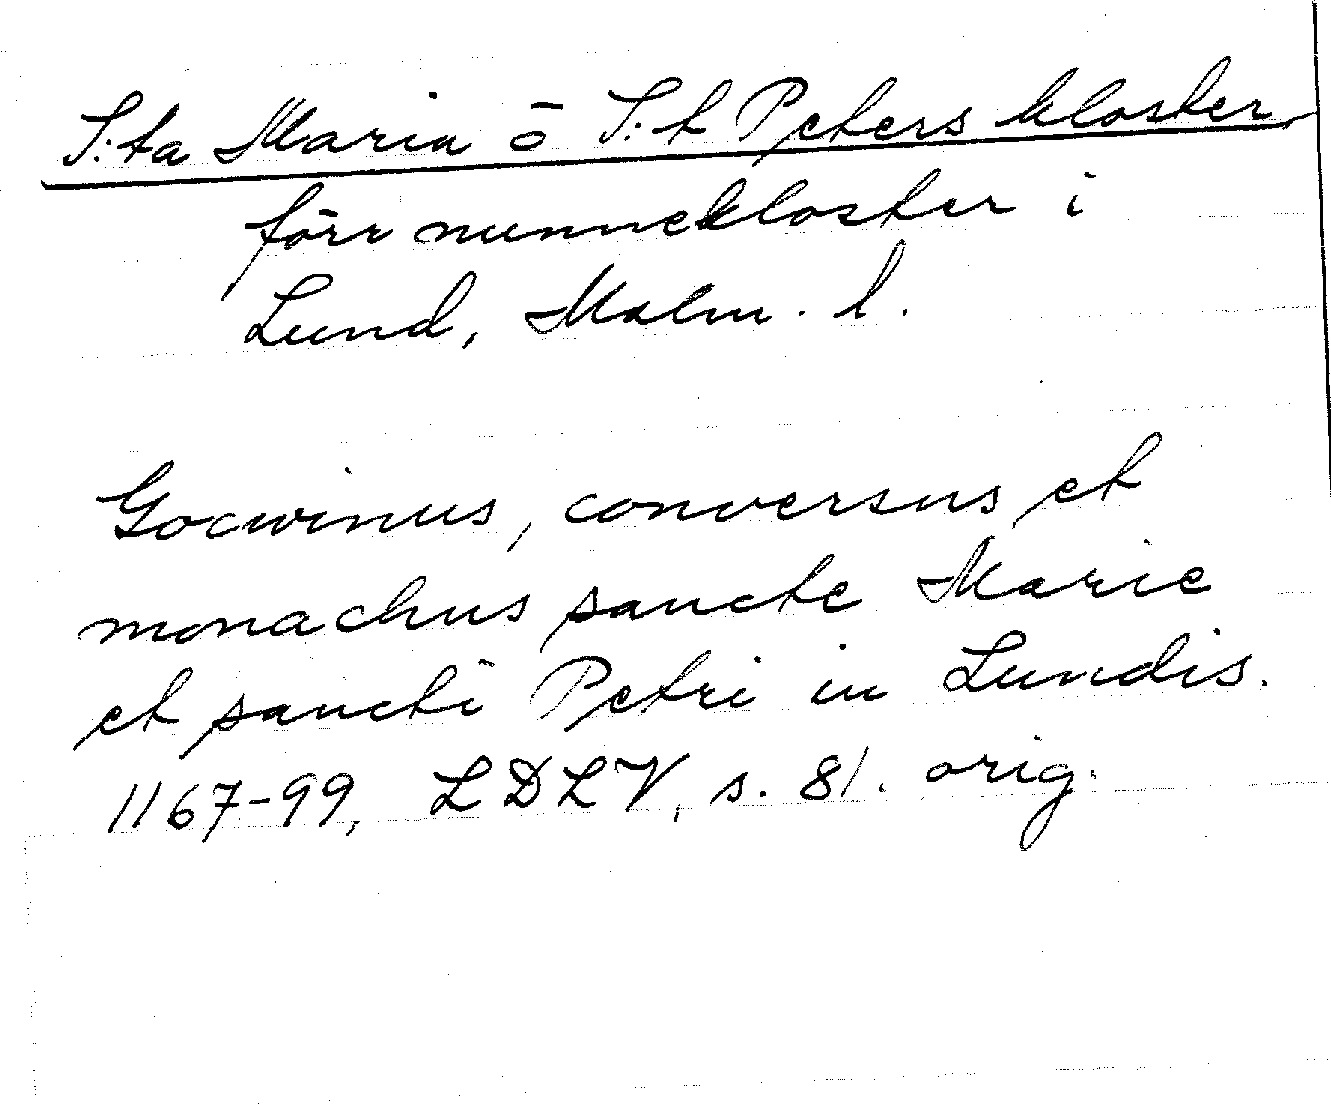 S:ta Maria o S:t Peters kloster,
förr nunnekloster i
Lund, Malm. l.
Gocwinus, conversus et
monachus sancte Marie
et sancti Petri in Lundis.
1167-99, LDLV, s. 81. orig.